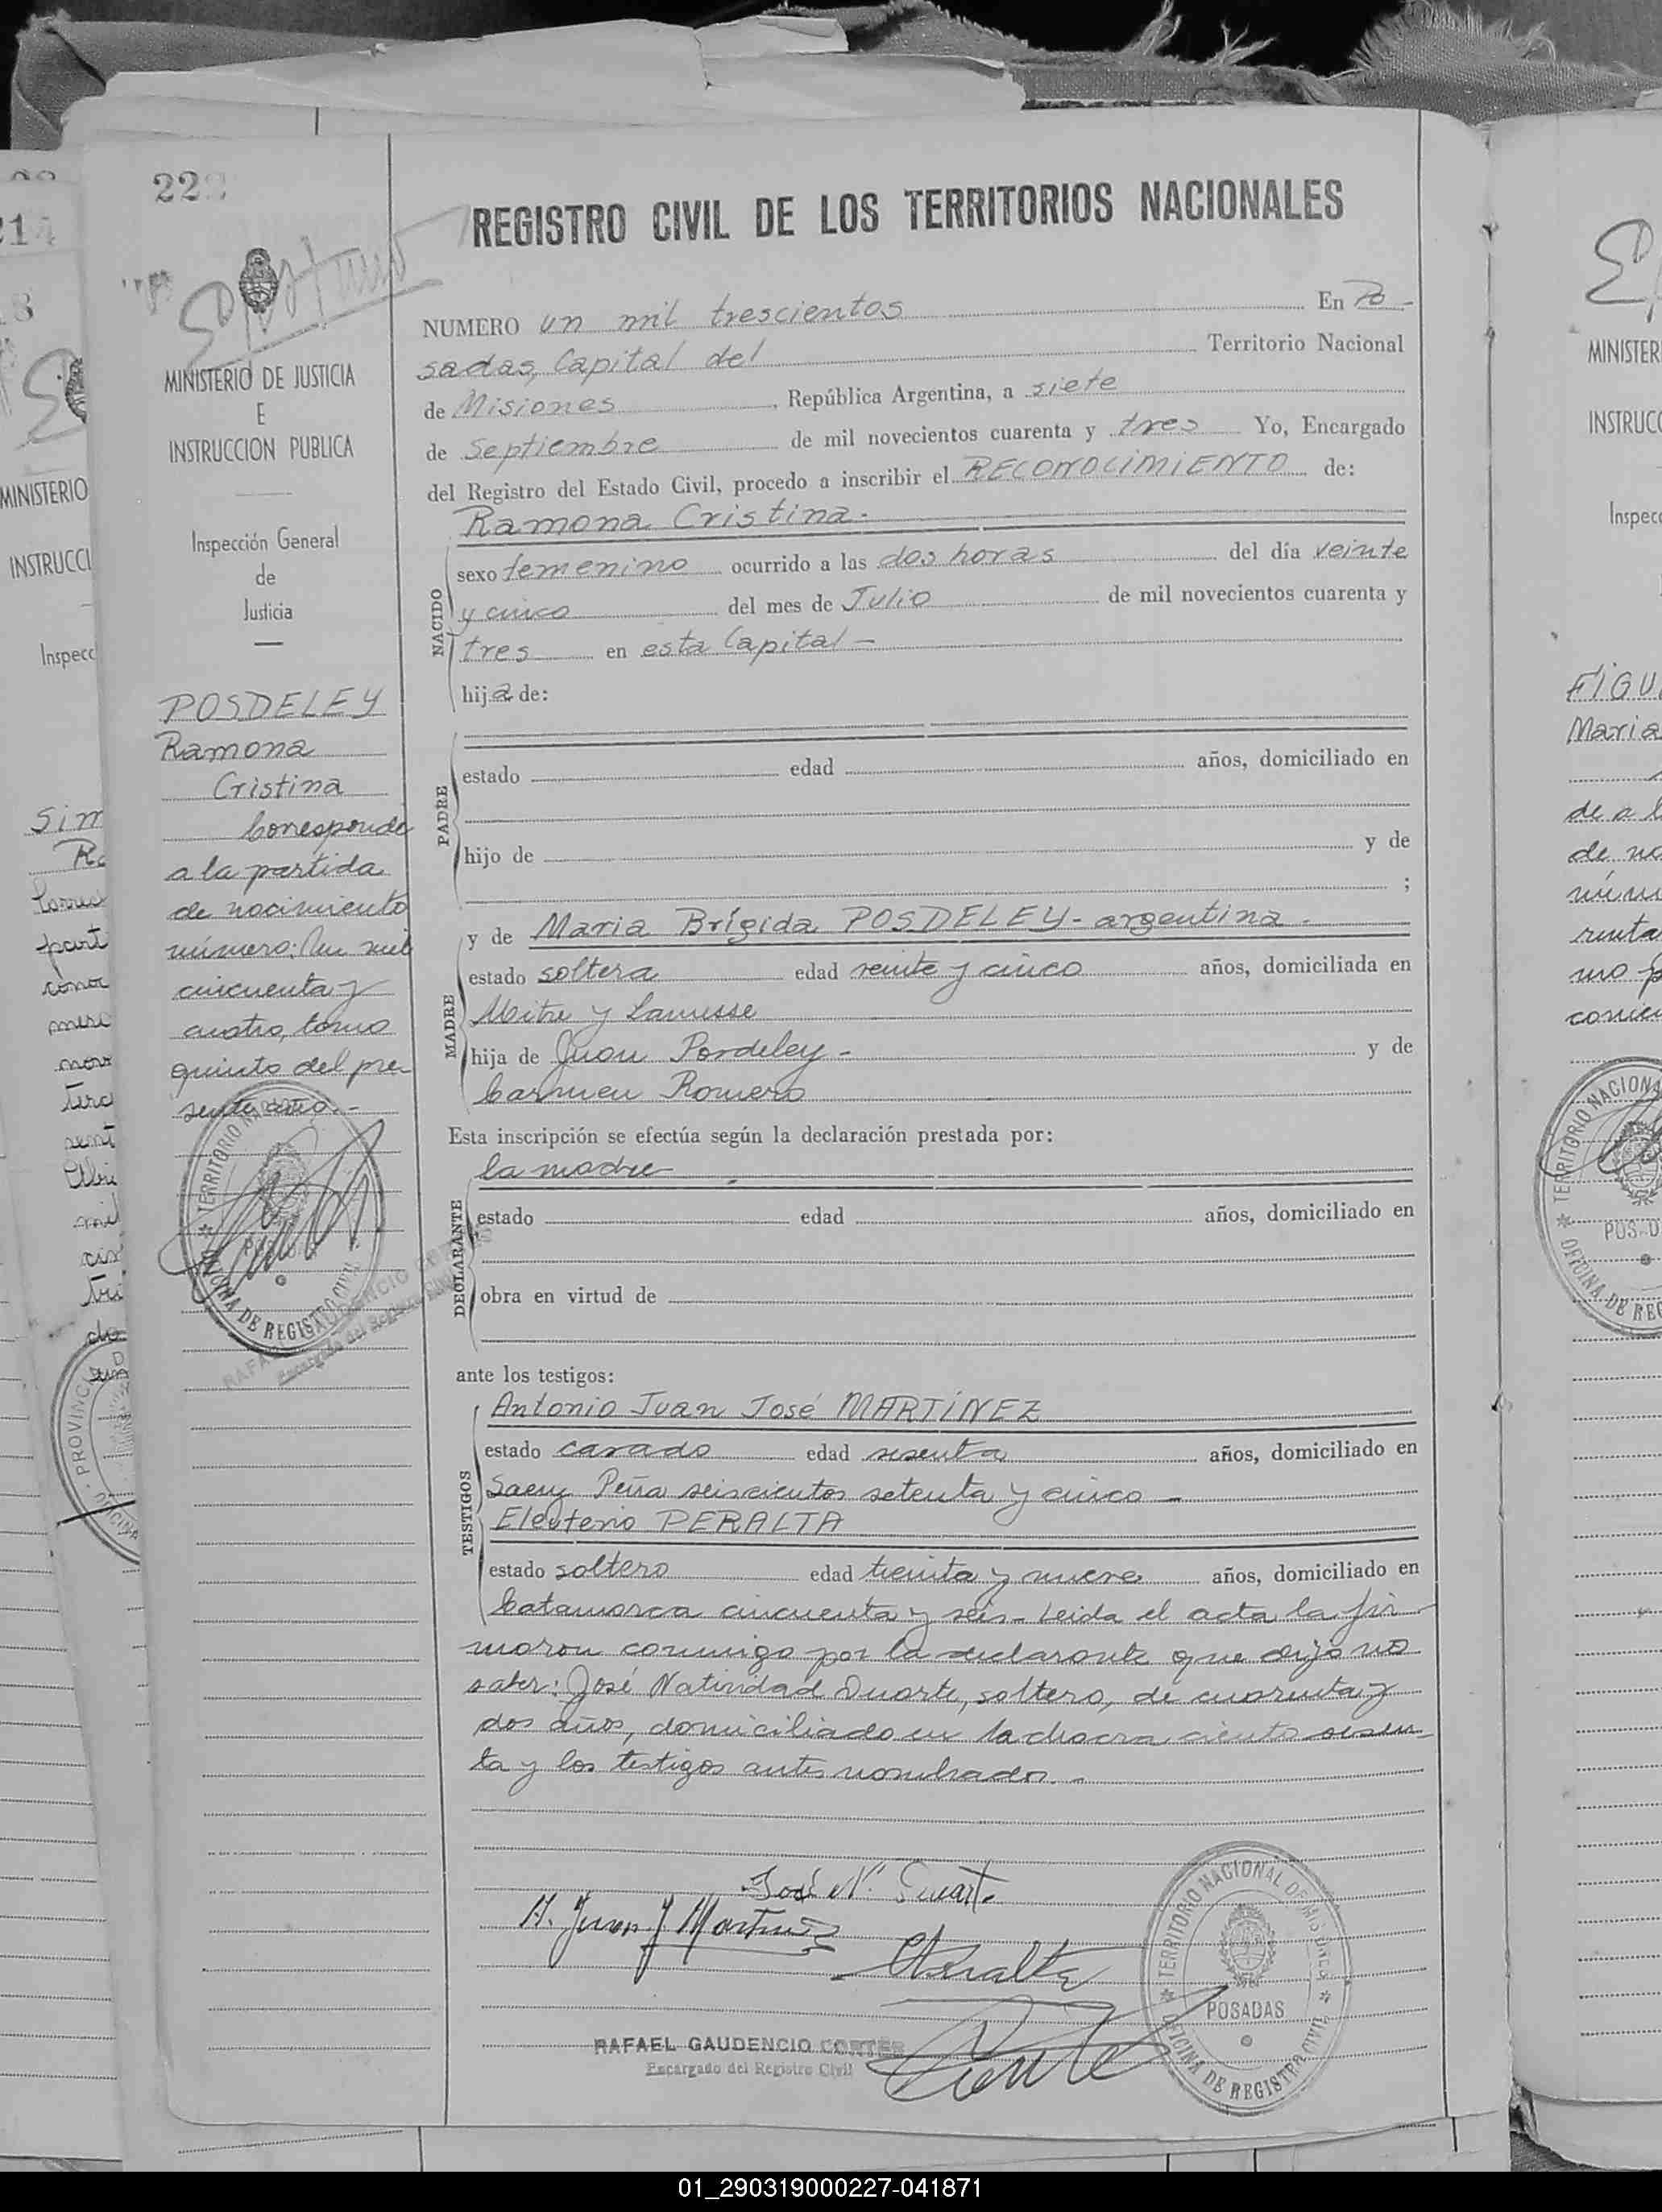 REGISTRO CIVIL DE LOS TERRITORIOS NACIONALES
MINISTERIO DE JUSTICIA
E
INSTRUCCION PUBLICA
Inspección General
de
Justicia
POSDELEY
Ramona
Cristina
Corresponde
a la partida
de nacimiento
número: Un mil
cincuenta y
cuatro, tomo
quinto del pre-
sente año.-
NUMERO un mil trescientos En Po-
sadas, Capital del Territorio Nacional
de Misiones, República Argentina, a siete
de Septiembre de mil novecientos cuarenta y tres Yo, Encargado
del Registro del Estado Civil, procedo a inscribir el RECONOCIMIENTO de:
Ramona Cristina.
NACIDO
sexo femenino ocurrido a las dos horas del día veinte
y cinco del mes de Julio de mil novecientos cuarenta y
tres en esta Capital -
hija de:
PADRE
estado edad años, domiciliado en
hijo de y de
;
y de Maria Brígida POSDELEY - argentina.
MADRE
estado soltera edad veinte y cinco años, domiciliada en
Mitre y Lanusse
hija de Juan Posdeley - y de
Carmen Romero
Esta inscripción se efectúa según la declaración prestada por:
la madre
DECLARANTE
estado edad años, domiciliado en
obra en virtud de
ante los testigos:
TESTIGOS
Antonio Juan José MARTÍNEZ
estado casado edad sesenta años, domiciliado en
Saenz Peña seiscientos setenta y cinco -
Eleuterio PERALTA
estado soltero edad treinta y nueve años, domiciliado en
Catamarca cincuenta y seis - Leida el acta la fir-
maron conmigo por la declarante que dijo no
saber: José Natividad Duarte, soltero, de cuarenta y
dos años, domiciliado en la chacra ciento sesen-
ta y los testigos antes nombrados. -
José N. Duarte
A. Juan J Martinez
EPeralta
RAFAEL GAUDENCIO CORTES
Encargado del Registro Civil
TERRITORIO NACIONAL DE MISIONES
POSADAS
OFICINA DE REGISTRO CIVIL
01_290319000227-041871